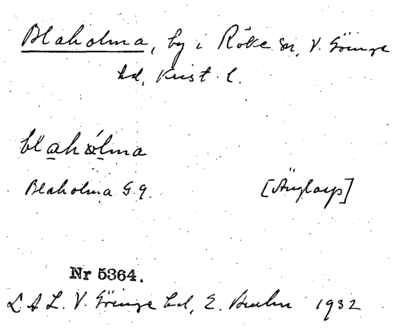 Blaholma, by i Röke sn, V. Göinge
hd, Krist. l.
blahólma
Blaholma G.g. [Änglarp]
Nr 5364.
L A L. V. Göinge hd, E. 1932